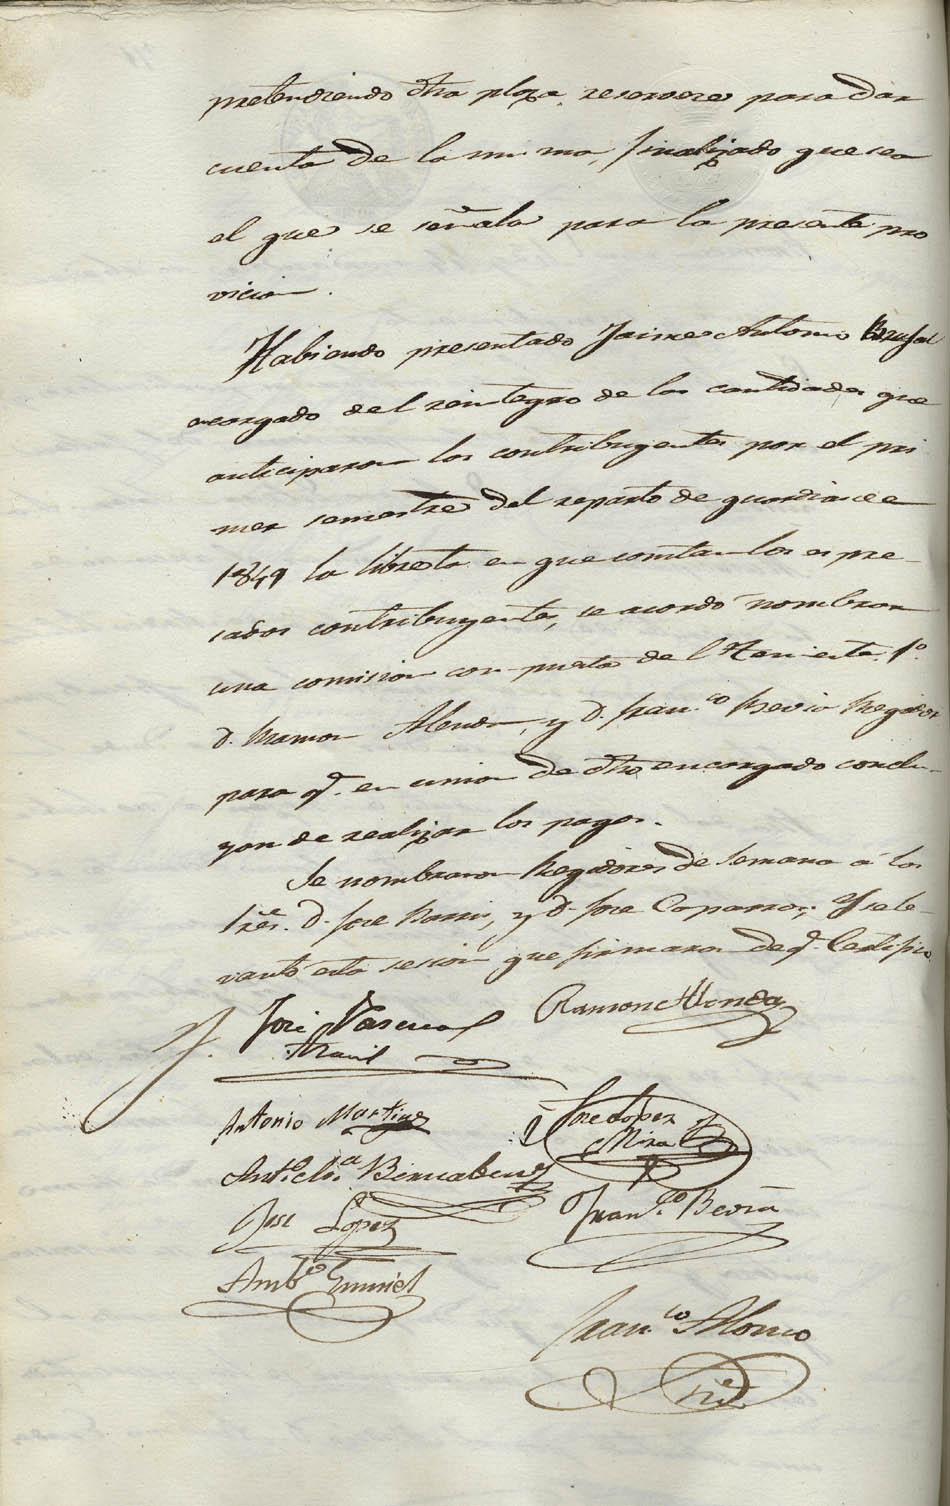 pretendiendo dha plaza, reservese para dar
cuenta de la misma, finalizado que sea
el que se señala para la presente pro
vicion.
Habiendo presentado Jaime Antonio Brufal
encargado del reintegro de las cantidades que
anticiparon los contribuyentes por el pri
mer semestre del reparto de guardias de
1849 la libreta en que constan los espre-
sados contribuyentes, se acordó nombrar
una comision compuesta del Teniente 1º.
D. Ramon Alenda, y D. Fran.co Bevia Regidor
para q.e en union de dho encargado conclu-
yan de realizar los pagos.
Se nombraron Regidores de Semana á los
Sres. D. Jose y D. Jose Caparros; Y se le-
vantó esta sesion que firmaron de q.e Certifico
José Pascual
Ramon Alenda
Antonio Martinez
Jose Lopez
Mira
Ant.o Bernabeu
Jose Lopez
Fran.co Bevia
Amb.o
Fran.co Alonso
Srio